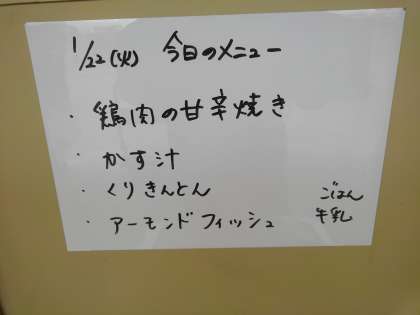 1/22(火) 今日のメニュー
・鶏肉の甘辛焼き
・かす汁
・くりきんとん
・アーモンドフィッシュ
ごはん
牛乳